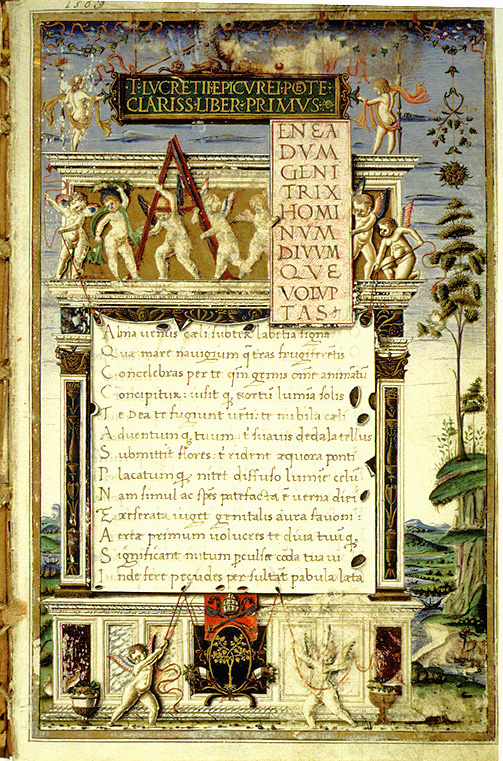 T·LVCRETII·EPICVREI·POETE·
CLARISS·LIBER·PRIMVS·
A
ENEA
DVM
GENI
TRIX
HOMI
NVM
DIVVM
QVE
VOLVP
TAS
Alma venus cæli subter labentia signa
Quæ mare navigerum q̃ tras frugiferentis
Concelebras per te qm̃ genus om̃e animãtũ
Concipitur: visit q; exortũ lumina solis
Te Dea te fugiunt venti: te nubila cæli
Adventum q; tuum: tibi suavis dedala tellus
Submittit flores: tibi rident æquora ponti
Placatum q; nitet diffuso lumine celũ
Nam simul ac spẽs patefacta ẽ verna diei
Et reserata viget genitalis aura favoni:
Aeriæ primum volucres te diva tuũ q;
Significant initum perculsæ corda tua vi
Inde feræ pecudes persultant pabula læta